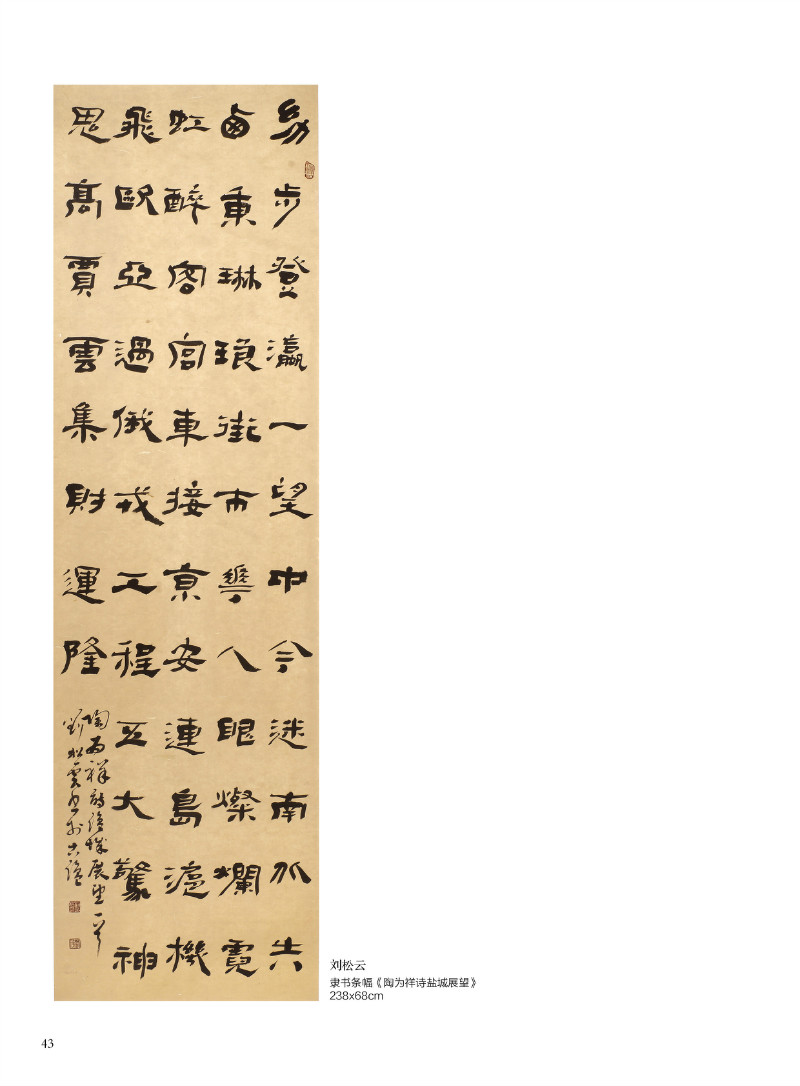 步登瀛一望中今迷南北失
卤東琳琅街市華人眼燦爛霓
虹醉客宮車接京安連島滬機
飛歐亞過俄戎工程五大驚神
思高賈雲集財運隆
陶為祥詩鹽城展望一首
劉松雲書於古鹽
刘松云
隶书条幅《陶为祥诗盐城展望》
238x68cm
43